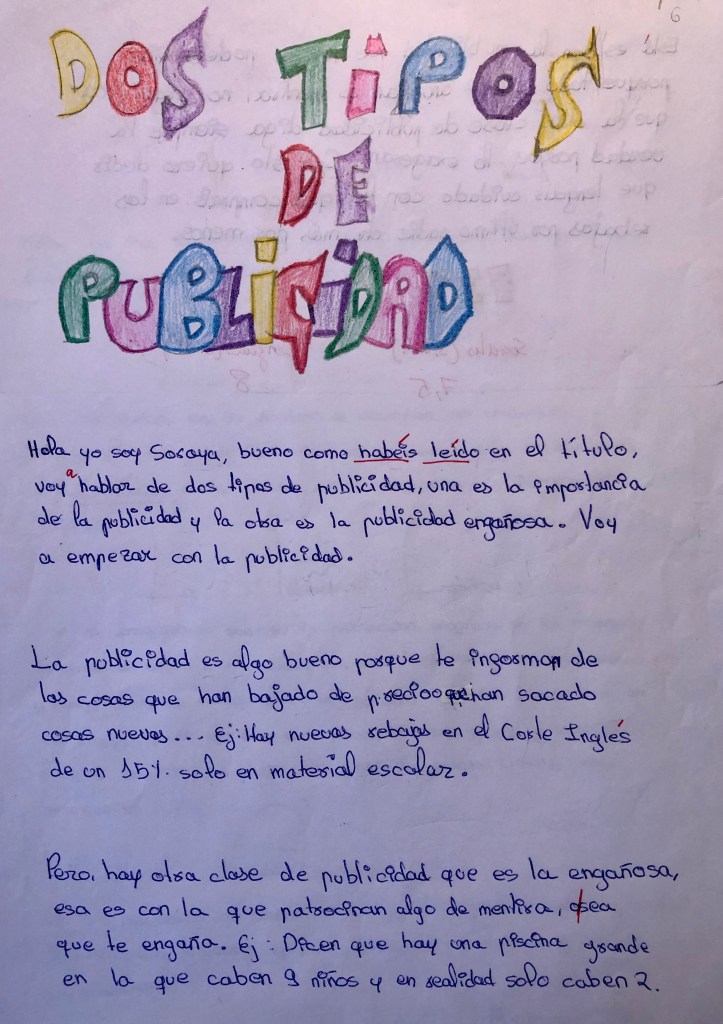 6
DOS TIPOS
DE
PUBLICIDAD
Hola yo soy Soraya, bueno como habéis leído en el título,
voy a hablar de dos tipos de publicidad, una es la importancia
de la publicidad y la otra es la publicidad engañosa. Voy
a empezar con la publicidad.
La publicidad es algo bueno porque te informan de
las cosas que han bajado de precio o que han sacado
cosas nuevas... Ej: Hay nuevas rebajas en el Corte Inglés
de un 15% solo en material escolar.
Pero, hay otra clase de publicidad que es la engañosa,
esa es con la que patrocinan algo de mentira, o sea
que te engaña. Ej: Dicen que hay una piscina grande
en la que caben 9 niños y en realidad solo caben 2.